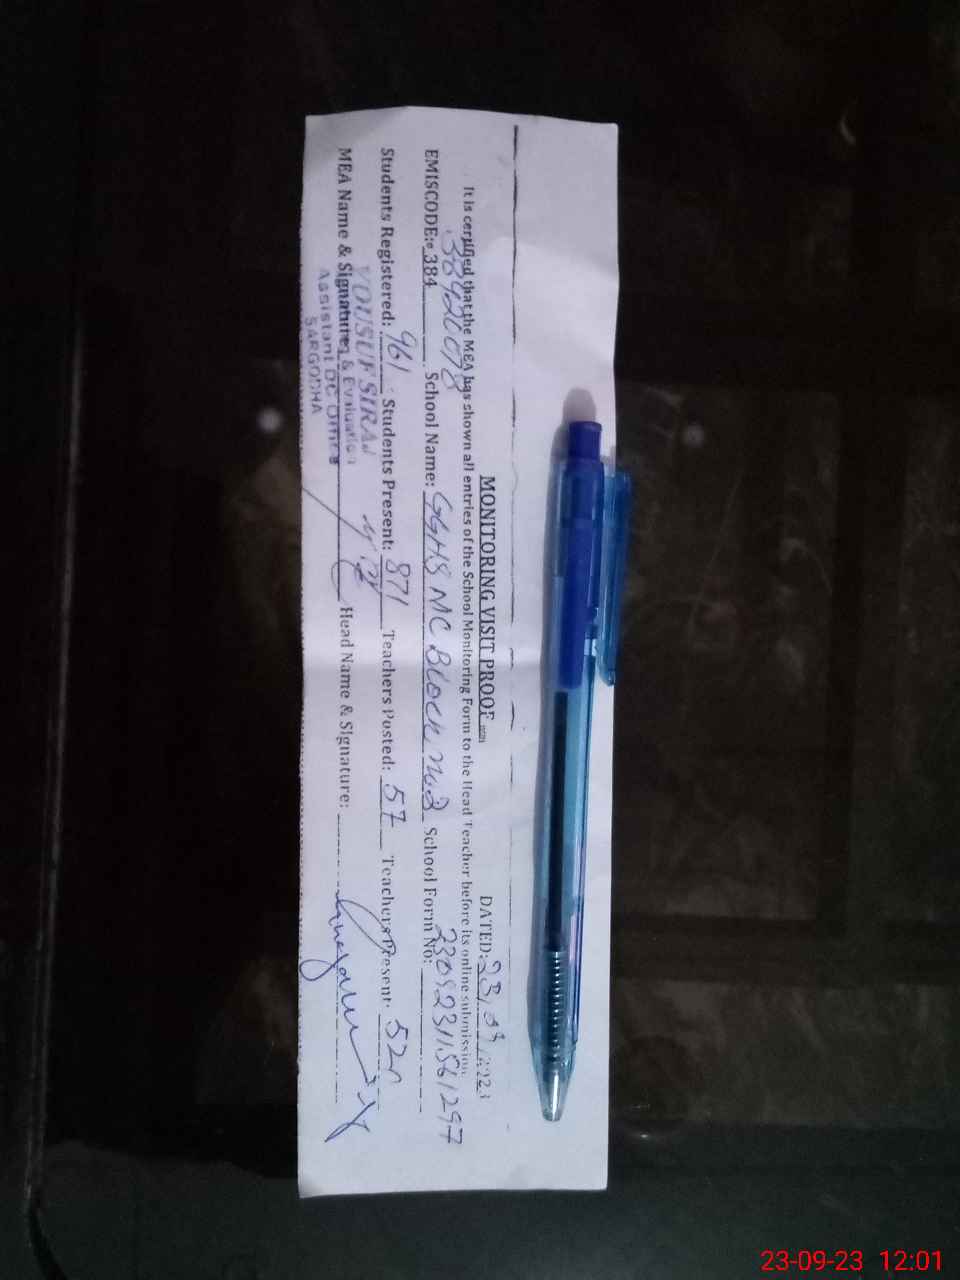 MONITORING VISIT PROOF DATED: 23.09.2023
It is certified that the MEA has shown all entries of the School Monitoring Form to the Head Teacher before its online submission.
38420078
EMISCODE: 384 School Name: GGHS MC Block No 2 School Form No:
Students Registered: 961 Students Present: 871 Teachers Posted: 57 Teachers Present: 52
MEA Name & Signature: Head Name & Signature:
YOUSUF SIRAJ
Monitoring & Evaluation
Assistant DC Office
SARGODHA
23-09-23 12:01